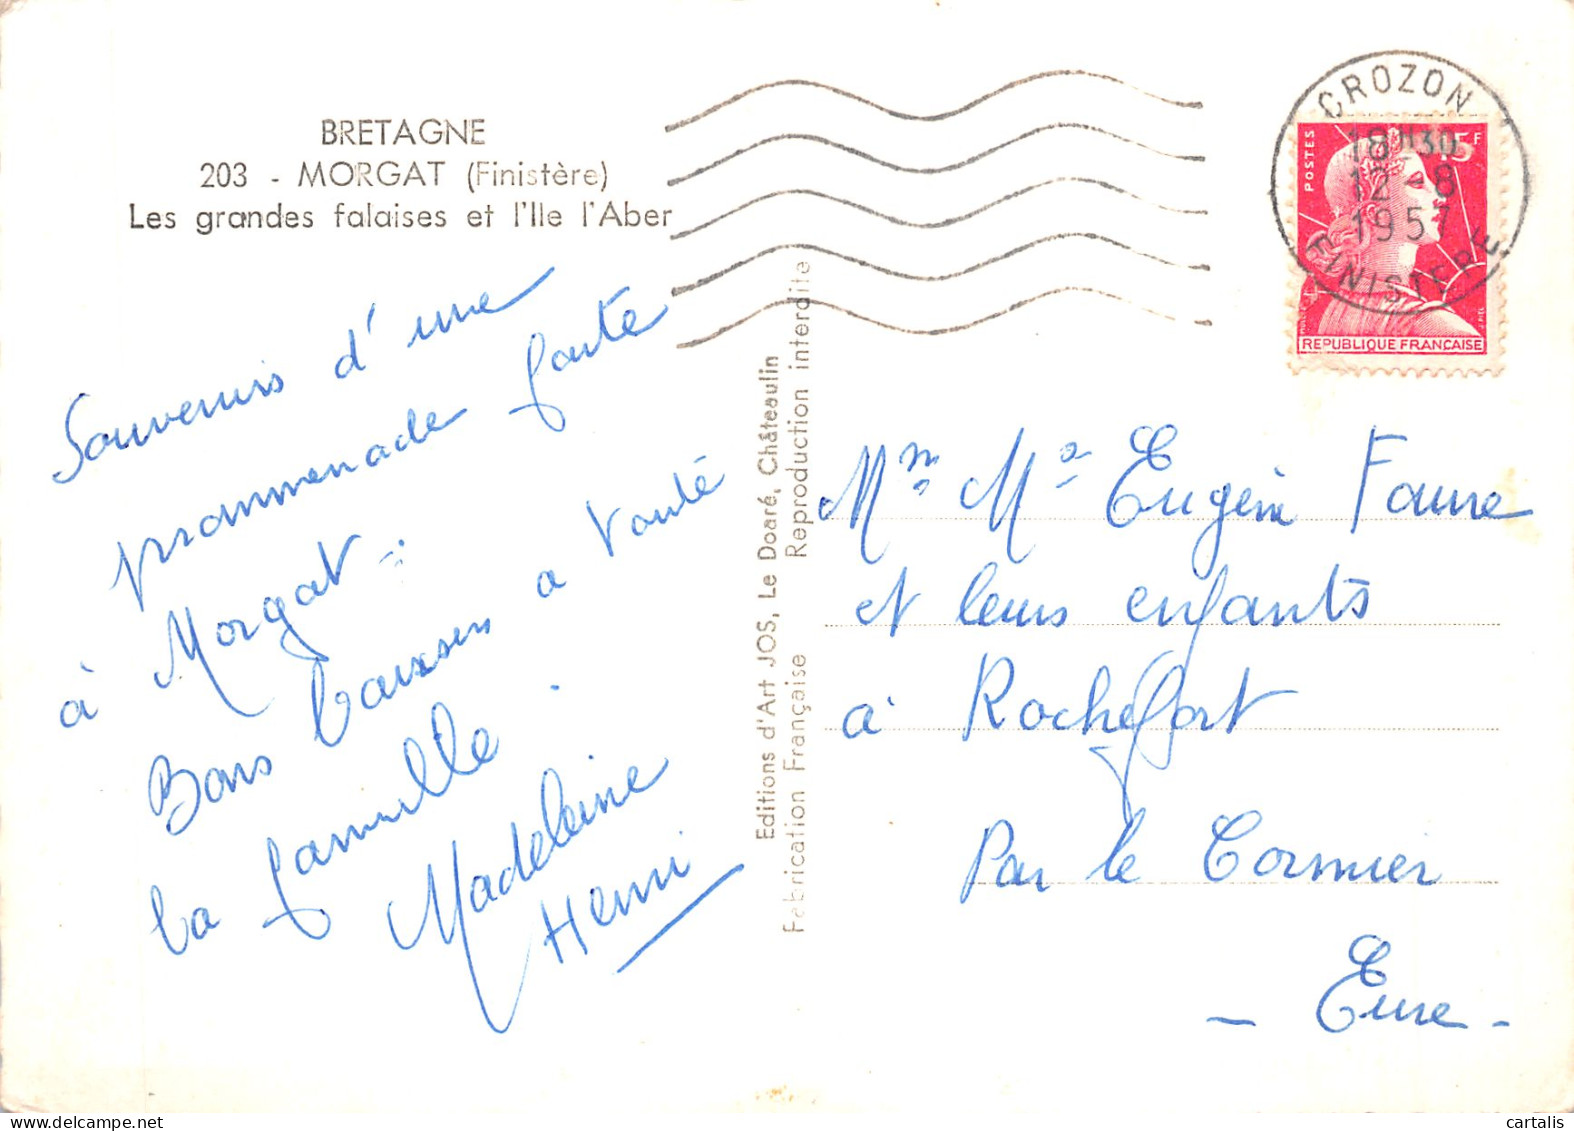 BRETAGNE
203 - MORGAT (Finistère)
Les grandes falaises et l'Ile l'Aber
Souvenirs d'une
prommenade faite
à Morgat -
Bons baisers a touté
la famille.
Madeleine
Henri
Editions d'Art JOS, Le Doaré, Châteaulin
Fabrication Française Reproduction interdite
CROZON
18H30
12-8
1957
FINISTERE
POSTES
15F
REPUBLIQUE FRANÇAISE
Mr Me Eugèn Faure
et leurs enfants
à Rochefort
Par le Cormier
- Eure -
cartalis